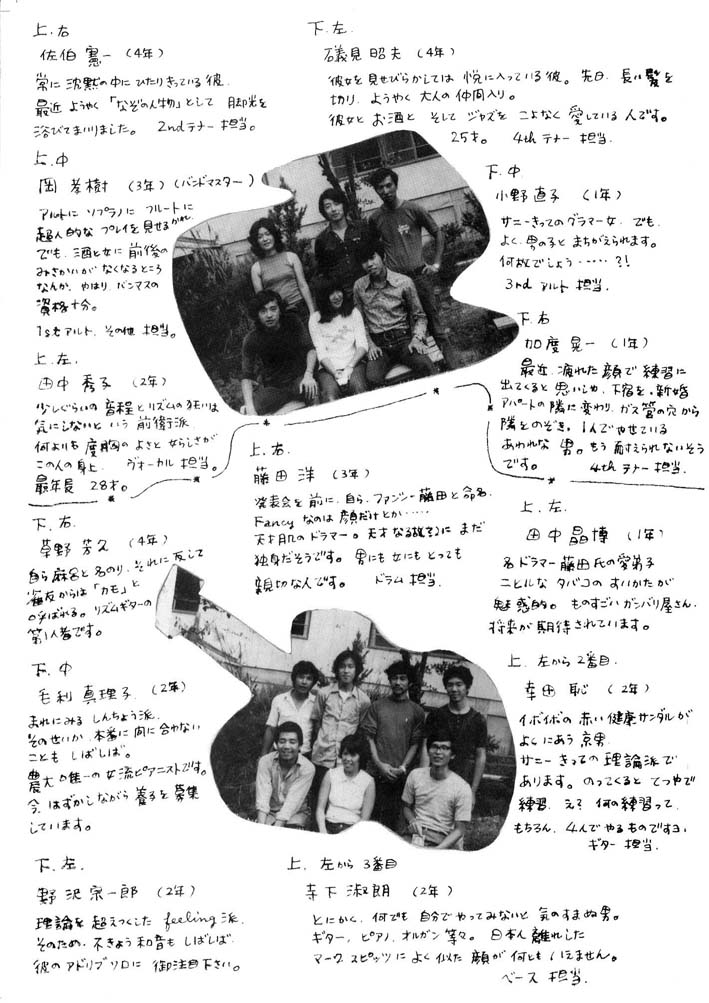 上.右
佐伯 憲一 (4年)
常に 沈黙の中に ひたりきっている彼.
最近 ようやく「なぞの人物」として 脚光を
浴びてまいりました。 2ndテナー 担当。
上.中
岡 孝樹 (3年)(バンドマスター)
アルトに ソプラノに フルートに
超人的な プレイを 見せるかれ.
でも、酒と女に 前後の
みさかいが なくなるところ
なんか、やはり、バンマスの
資格十分。
1stアルト、その他 担当。
上.左.
田中 秀子 (2年)
少しぐらいの 音程と リズムの 狂いは
気にしないと いう 前衛派
何よりも 度胸の よさと 女らしさが
この人の身上. ヴォーカル 担当。
最年長 28才。
下.左.
磯見 昭夫 (4年)
彼女を 見せびらかしては 悦に入っている 彼。 先日、長い髪を
切り、ようやく 大人の 仲間入り。
彼女と お酒と そして ジャズを こよなく 愛している 人です。
25才。 4thテナー 担当.
下.中.
小野 直子 (1年)
サニーきっての グラマー女. でも.
よく 男の子と まちがえられます。
何故でしょう……?!
3rd アルト 担当.
下.右
加度 晃一 (1年)
最近、疲れた 顔で 練習に
出てくると 思いしや、下宿を、新婚
アパートの 隣に 変わり、ガス管の 穴から
隣を のぞき、1人で やせている
あわれな 男。もう 耐えられないそう
です。 4thテナー 担当.
下.右.
草野 芳久 (4年)
自ら 麻呂と 名のり、それに 反して
雀友からは「カモ」と
呼ばれる。リズムギターの
第1人者です。
下.中
毛利 真理子. (2年)
まれにみる しんちょう派.
そのせいか、本番に 間に 合わない
ことも しばしば。
農大唯一の 女流ピアニストです。
今、はずかしながら 養子を 募集
しています。
下.左.
野沢 宗一郎 (2年)
理論を 超えつくした feeling派.
そのため、不きょう和音も しばしば.
彼の アドリブソロに 御注目下さい。
上.右.
藤田 洋 (3年)
発表会を 前に、自ら、ファンシー藤田と 命名.
Fancy なのは 顔だけとか……
天才肌の ドラマー。天才なる故に まだ
独身だそうです。男にも 女にも とっても
親切な人です。 ドラム 担当.
上.左.
田中 晶博 (1年)
名ドラマー 藤田氏の 愛弟子
ことに タバコの すいかたが
魅惑的。ものすごい ガンバリ屋さん.
将来が 期待されています。
上. 左から 2番目.
幸田 恥 (2年)
イボイボの 赤い 健康サンダルが
よくにあう 京男.
サニー きっての 理論派で
あります。のってくると てつやで
練習. え? 何の練習って.
もちろん. 4人で やるものですヨ.
ギター 担当.
上. 左から 3番目
寺下 淑朗 (2年)
とにかく、何でも 自分で やってみないと 気の すまぬ男。
ギター、ピアノ、オルガン 等々。日本人 離れした
マーク スピッツに よく 似た 顔が 何とも いえません。
ベース 担当.